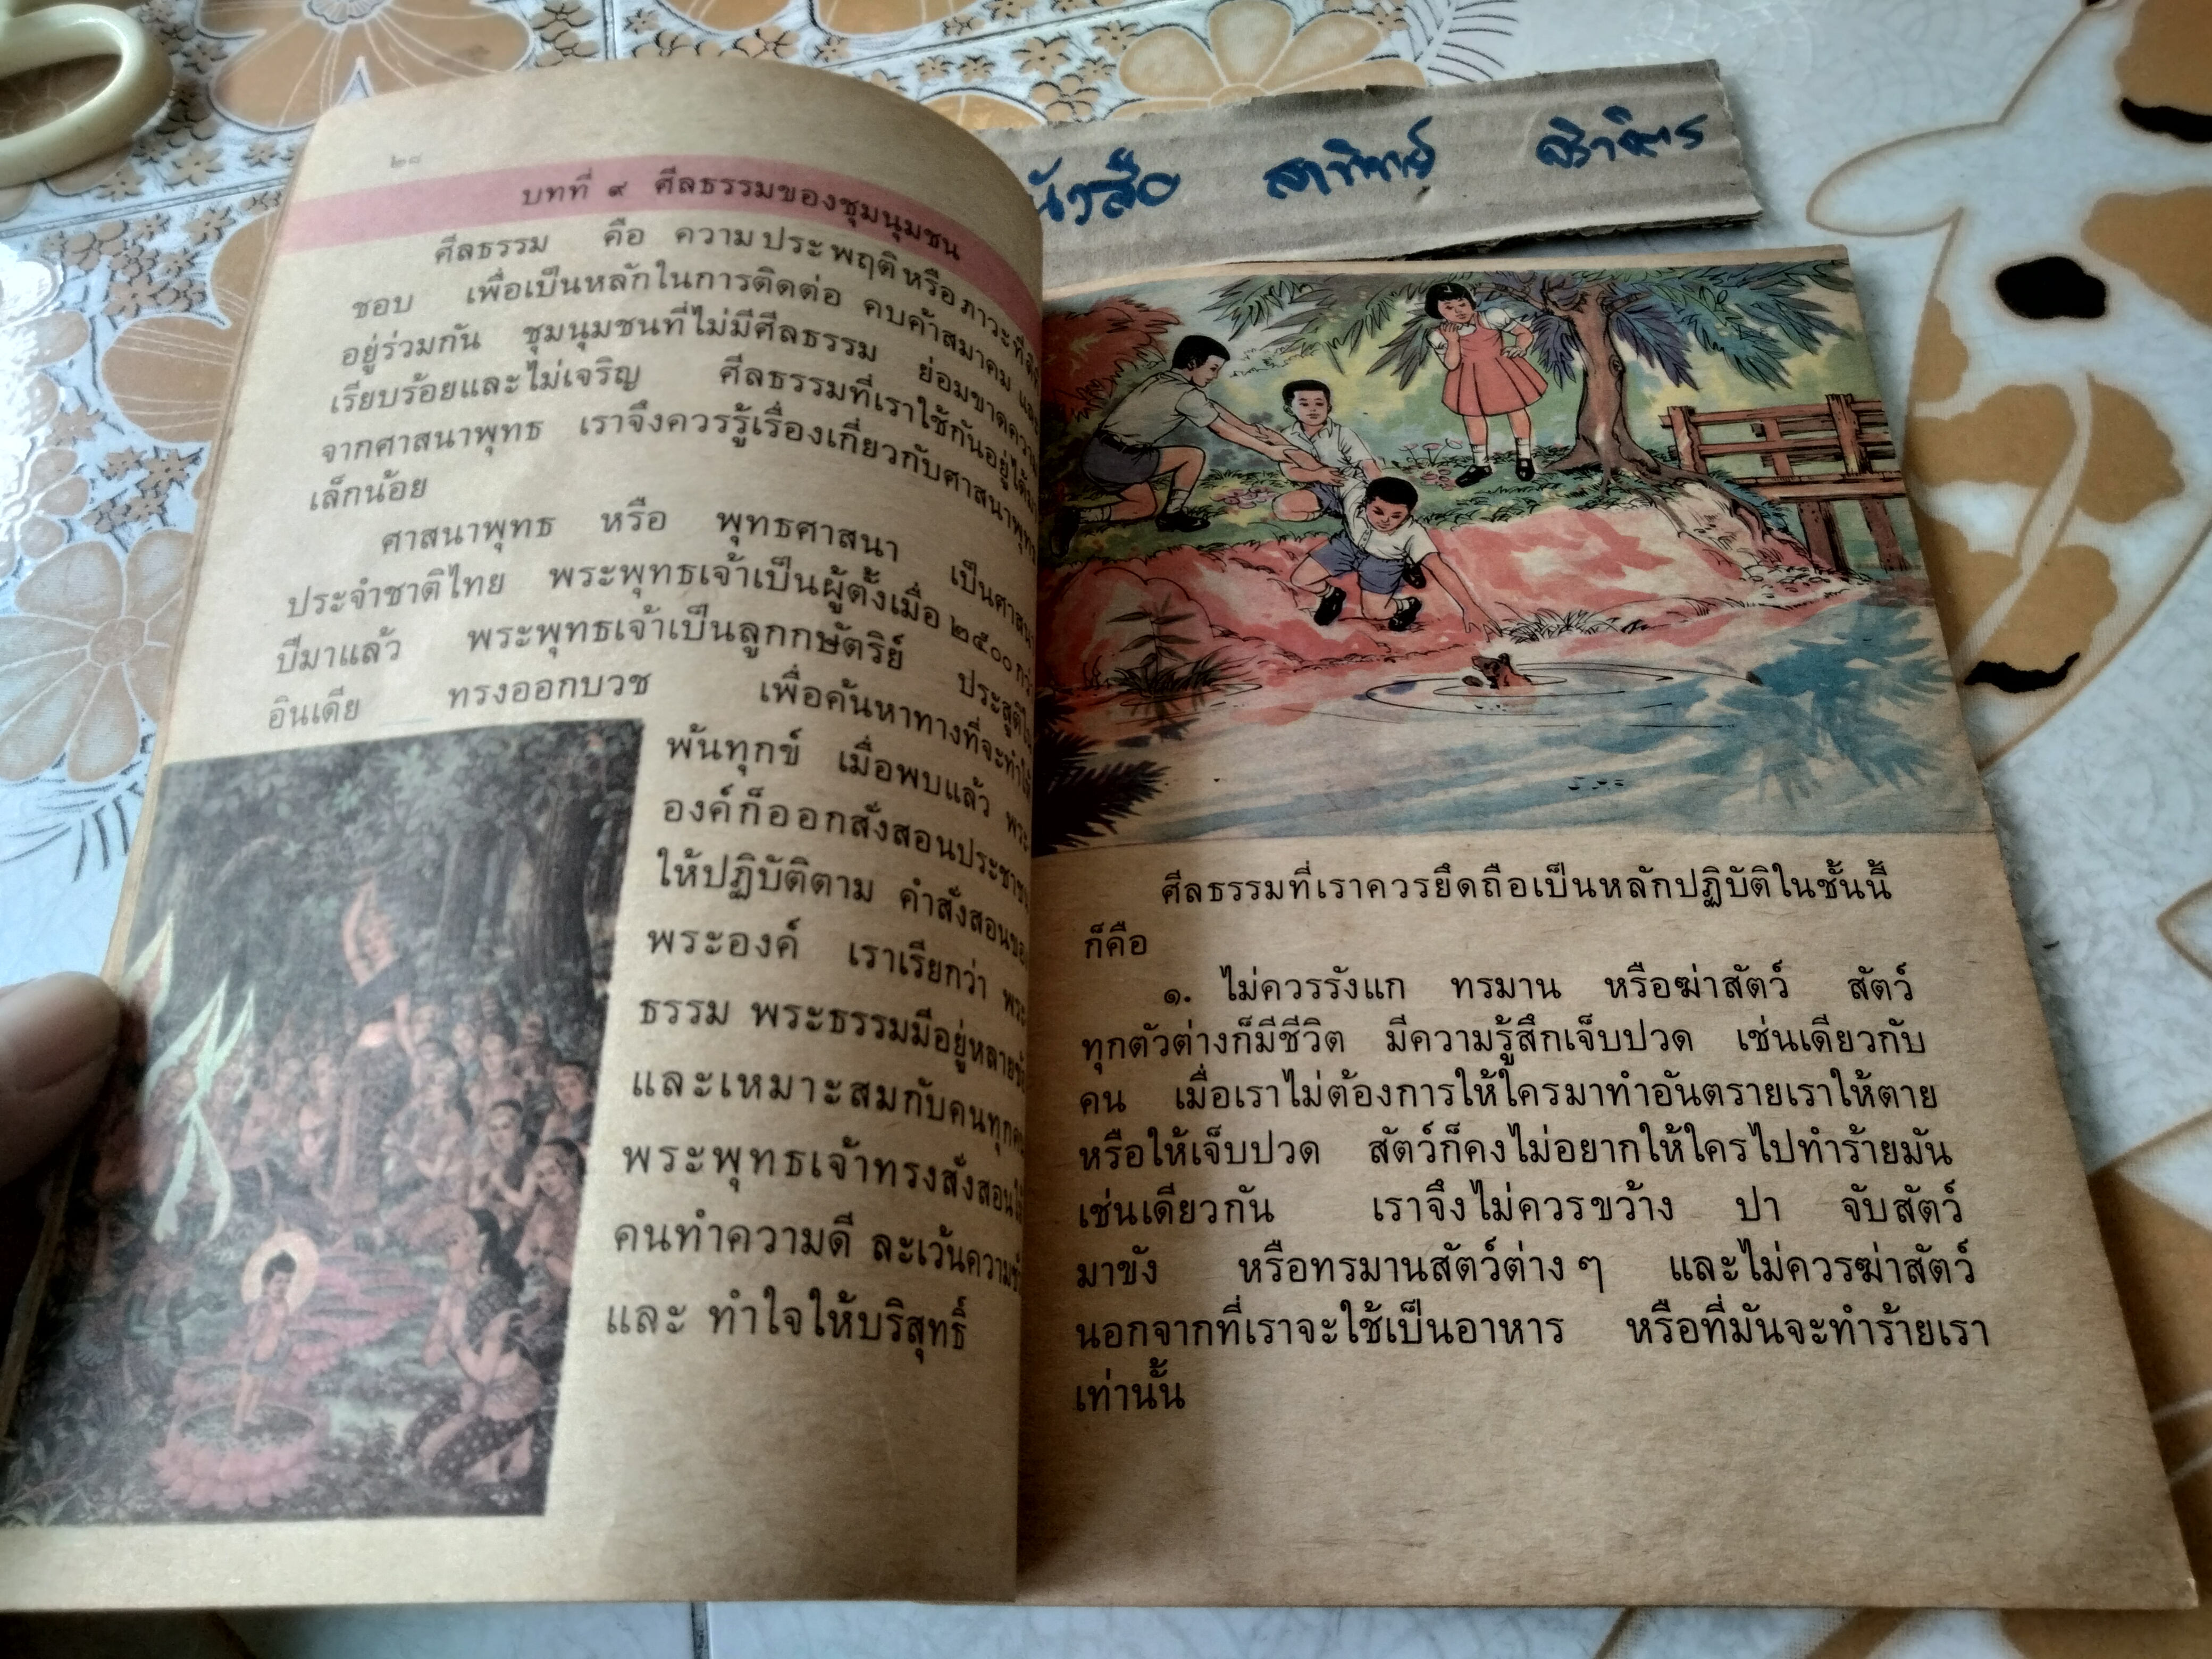 ๒๘
บทที่ ๙ ศีลธรรมของชุมนุมชน
ศีลธรรม คือ ความประพฤติหรือภาวะที่ดี
ชอบ เพื่อเป็นหลักในการติดต่อ คบค้าสมาคม และ
อยู่ร่วมกัน ชุมนุมชนที่ไม่มีศีลธรรม ย่อมขาดความ
เรียบร้อยและไม่เจริญ ศีลธรรมที่เราใช้กันอยู่ได้มา
จากศาสนาพุทธ เราจึงควรรู้เรื่องเกี่ยวกับศาสนาพุทธ
เล็กน้อย
ศาสนาพุทธ หรือ พุทธศาสนา เป็นศาสนา
ประจำชาติไทย พระพุทธเจ้าเป็นผู้ตั้งเมื่อ ๒๕๐๐ กว่า
ปีมาแล้ว พระพุทธเจ้าเป็นลูกกษัตริย์ ประสูติใน
อินเดีย ทรงออกบวช เพื่อค้นหาทางที่จะทำให้
พ้นทุกข์ เมื่อพบแล้ว พระ
องค์ก็ออกสั่งสอนประชาชน
ให้ปฏิบัติตาม คำสั่งสอนของ
พระองค์ เราเรียกว่า พระ
ธรรม พระธรรมมีอยู่หลายข้อ
และเหมาะสมกับคนทุกคน
พระพุทธเจ้าทรงสั่งสอนให้
คนทำความดี ละเว้นความชั่ว
และ ทำใจให้บริสุทธิ์
ศีลธรรมที่เราควรยึดถือเป็นหลักปฏิบัติในชั้นนี้
ก็คือ
๑. ไม่ควรรังแก ทรมาน หรือฆ่าสัตว์ สัตว์
ทุกตัวต่างก็มีชีวิต มีความรู้สึกเจ็บปวด เช่นเดียวกับ
คน เมื่อเราไม่ต้องการให้ใครมาทำอันตรายเราให้ตาย
หรือให้เจ็บปวด สัตว์ก็คงไม่อยากให้ใครไปทำร้ายมัน
เช่นเดียวกัน เราจึงไม่ควรขว้าง ปา จับสัตว์
มาขัง หรือทรมานสัตว์ต่าง ๆ และไม่ควรฆ่าสัตว์
นอกจากที่เราจะใช้เป็นอาหาร หรือที่มันจะทำร้ายเรา
เท่านั้น